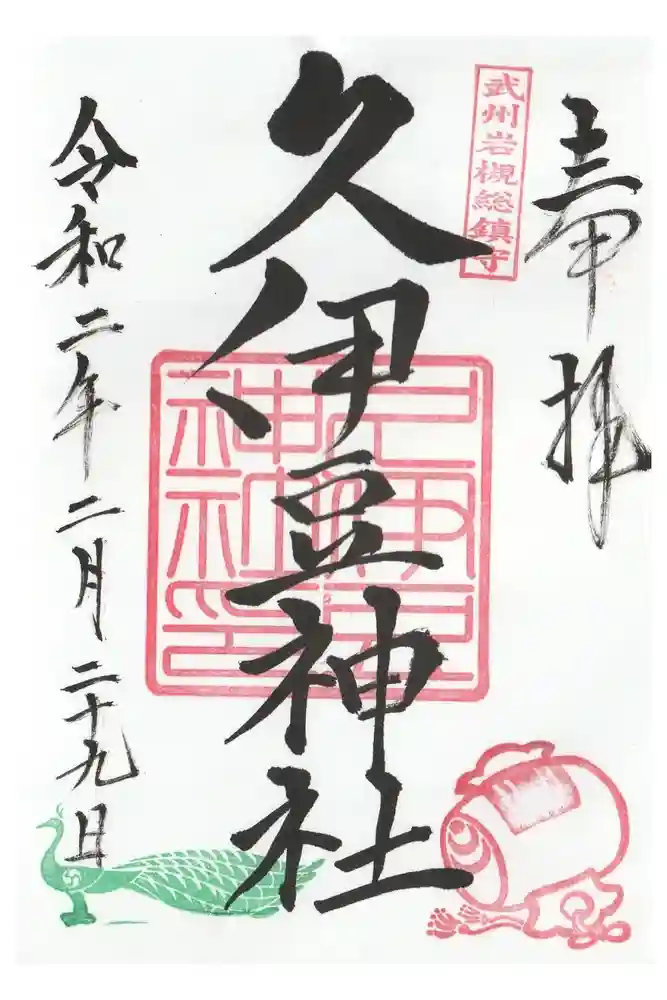 奉拝
武州岩槻総鎮守
久伊豆神社
久伊豆
神社印
令和二年二月二十九日